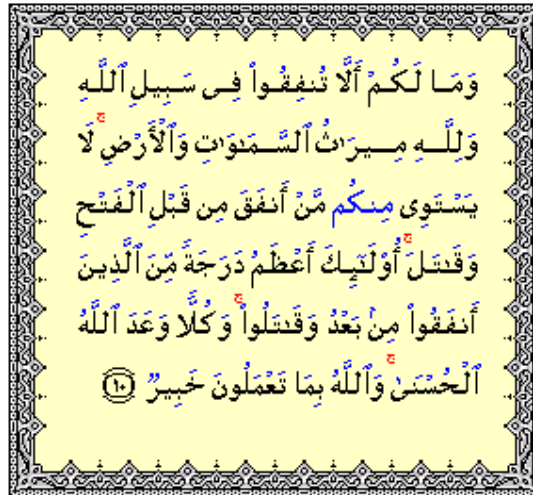 وَمَا لَكُمْ أَلَّا تُنفِقُوا۟ فِى سَبِيلِ ٱللَّهِ
وَلِلَّهِ مِيرَٰثُ ٱلسَّمَٰوَٰتِ وَٱلْأَرْضِ ۚ لَا
يَسْتَوِى مِنكُم مَّنْ أَنفَقَ مِن قَبْلِ ٱلْفَتْحِ
وَقَٰتَلَ ۚ أُو۟لَٰٓئِكَ أَعْظَمُ دَرَجَةً مِّنَ ٱلَّذِينَ
أَنفَقُوا۟ مِنۢ بَعْدُ وَقَٰتَلُوا۟ ۚ وَكُلًّا وَعَدَ ٱللَّهُ
ٱلْحُسْنَىٰ ۚ وَٱللَّهُ بِمَا تَعْمَلُونَ خَبِيرٌ ١٠